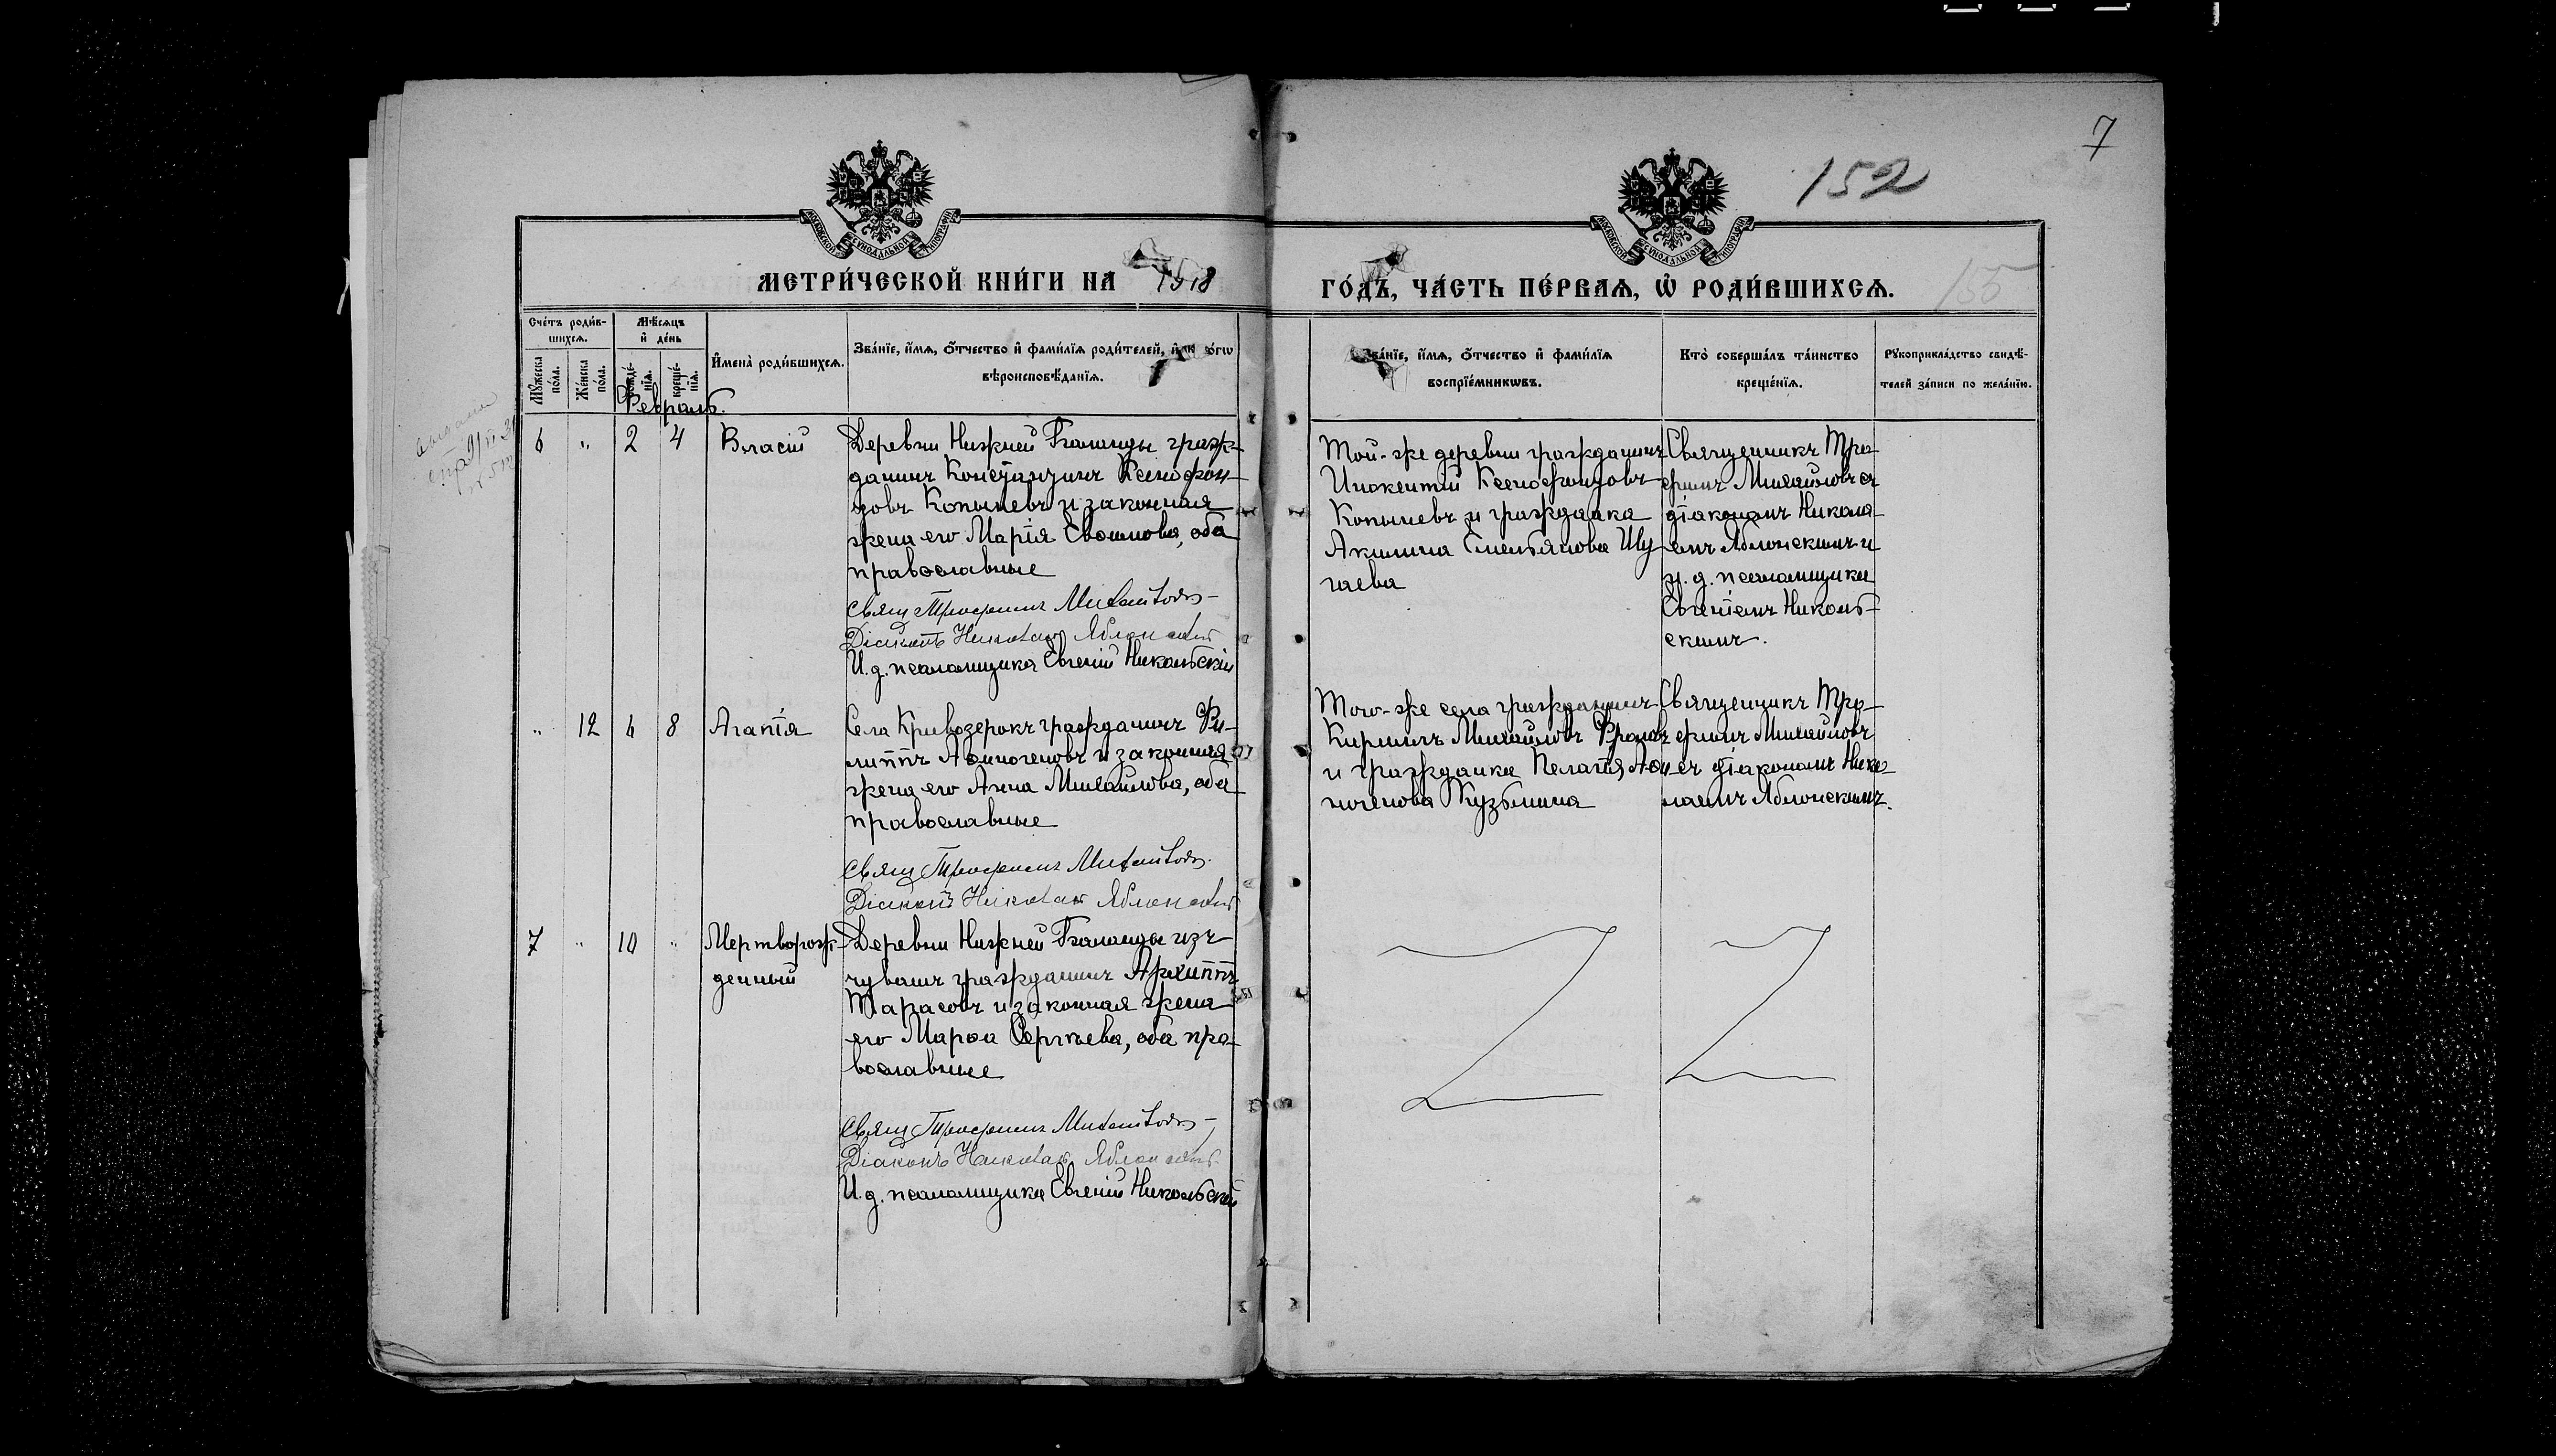 7
152
155
МОСКОВСКОЙ СѴНОДАЛЬНОЙ ТИПОГРАФІИ
МОСКОВСКОЙ СѴНОДАЛЬНОЙ ТИПОГРАФІИ
МЕТРИ́ЧЕСКОЙ КНИ́ГИ НА 1918
ГО́ДЪ, ЧА́СТЬ ПЕ́РВАѦ, Ѡ҆ РОДИ́ВШИХСѦ.
Сче́тъ роди́в-
шихсѧ.
Мꙋ́жеска
по́ла.
Же́нска
по́ла.
Мѣ́сѧцъ
и҆ де́нь
рожде́-
нїѧ.
креще́-
нїѧ.
И҆мена̀ роди́вшихсѧ.
Зва́нїе, и҆́мѧ, ѻ҆́тчество и҆ фами́лїѧ роди́телей, и҆
вѣроисповѣ́данїѧ.
Зва́нїе, и҆́мѧ, ѻ҆́тчество и҆ фами́лїѧ
воспрїе́мникωвъ.
Кто̀ соверша́лъ та́инство
креще́нїѧ.
Рꙋкоприкла́дство свидѣ́-
телей за́писи по жела́нїю.
Февраль.
6 " 2 4 Власій
Деревни Нижней Гланды граж-
данинъ Константинъ Ксенофон-
товъ Копышевъ и законная
жена его Марія, оба
православные
Свящ Трофимъ Михайловъ
Діаконъ Николай Яблонскій
И.д. псаломщика Евгеній Никольскій
Той-же деревни гражданинъ
Инокентій Ксенофонтовъ
Копышевъ и гражданка
Акилина Емельянова Шу
гаева
Священникъ Тро-
фимъ Михайловъ съ
діакономъ Никола-
емъ Яблонскимъ и
и.д. псаломщика
Евгеніемъ Николь-
скимъ.
" 12 6 8 Агапія
Села Кривозерокъ гражданинъ Фи-
липпъ Аѳиногеновъ и законная
жена его Анна Михайлова, оба
православные
Свящ Трофимъ Михайловъ.
Діаконъ Николай Яблонскій
Того-же села гражданинъ
Кириллъ Михайловъ Фролов
и гражданка Пелагія Аѳи-
ногенова Кузьмина
Священникъ Тро-
фимъ Михайловъ
съ діакономъ Нико-
лаемъ Яблонскимъ.
7 " 10 " Мертворож-
денный
Деревни Нижней Гланды изъ
чувашъ гражданинъ Архиппъ
Тарасовъ и законная жена
его Марѳа Сергѣева, оба пра-
вославные
Свящ Трофимъ Михайловъ
Діаконъ Николай Яблонскій
И.д. псаломщика Евгеній Никольскій